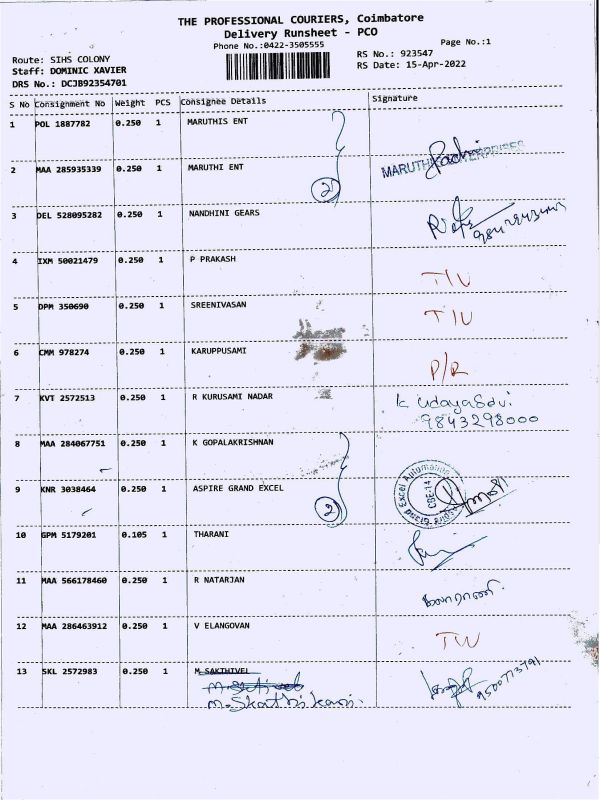 THE PROFESSIONAL COURIERS, Coimbatore
Delivery Runsheet - PCO
Phone No.:0422-3505555
Page No.:1
Route: SIHS COLONY
RS No.: 923547
Staff: DOMINIC XAVIER
RS Date: 15-Apr-2022
DRS No.: DCJB92354701
S No Consignment No Weight PCS Consignee Details Signature
1 POL 1887782 0.250 1 MARUTHIS ENT
2 MAA 285935339 0.250 1 MARUTHI ENT
2
3 DEL 528095282 0.250 1 NANDHINI GEARS
4 IXM 50021479 0.250 1 P PRAKASH T/U
5 DPM 350690 0.250 1 SREENIVASAN T/U
6 CMM 978274 0.250 1 KARUPPUSAMI P/R
7 KVT 2572513 0.250 1 R KURUSAMI NADAR K
9843298000
8 MAA 284067751 0.250 1 K GOPALAKRISHNAN
9 KNR 3038464 0.250 1 ASPIRE GRAND EXCEL
2
Excel CBE-14
10 GPM 5179201 0.105 1 THARANI
11 MAA 566178460 0.250 1 R NATARJAN
12 MAA 286463912 0.250 1 V ELANGOVAN
13 SKL 2572983 0.250 1 M SAKTHIVEL 9500773791